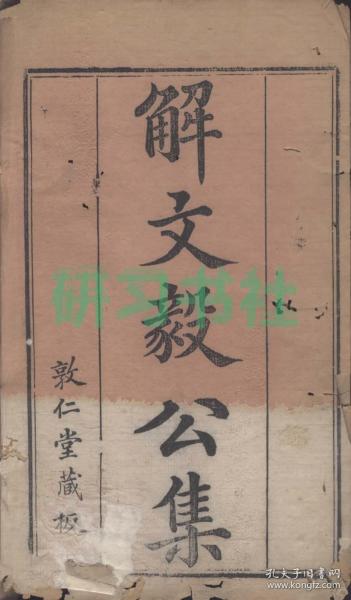 解文毅公集
敦仁堂藏板
研习书社
孔夫子旧书网